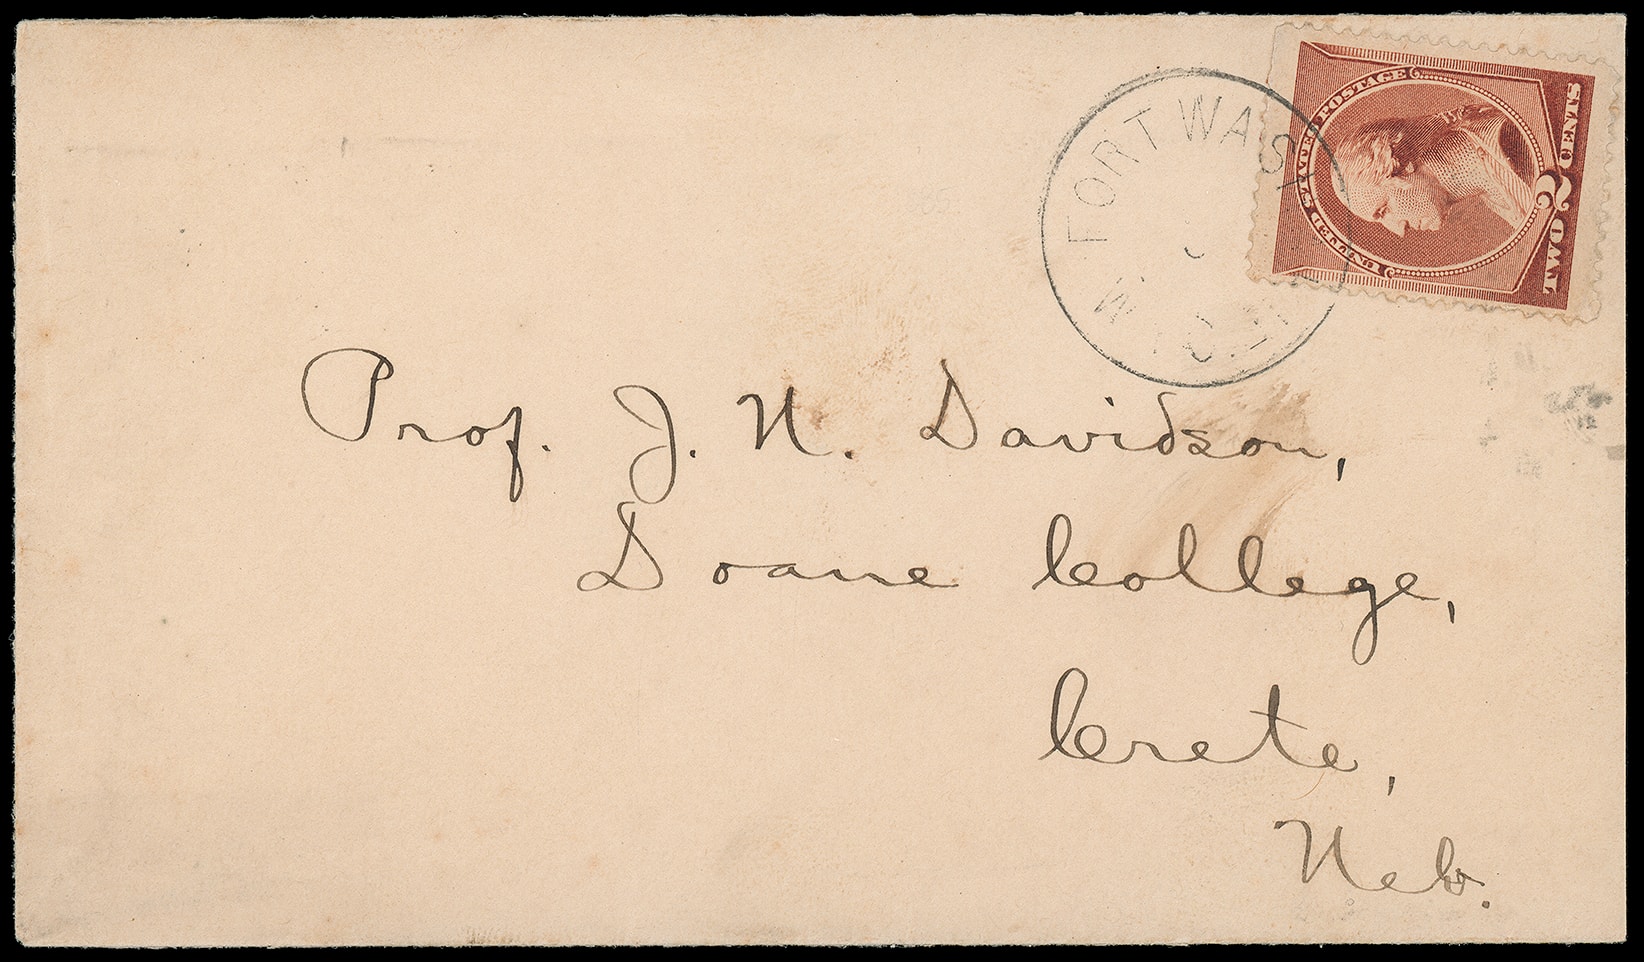 FORT WASH
W. T.
UNITED STATES POSTAGE
TWO 2 CENTS
Prof. J. N. Davidson,
Doane College,
Crete,
Neb.